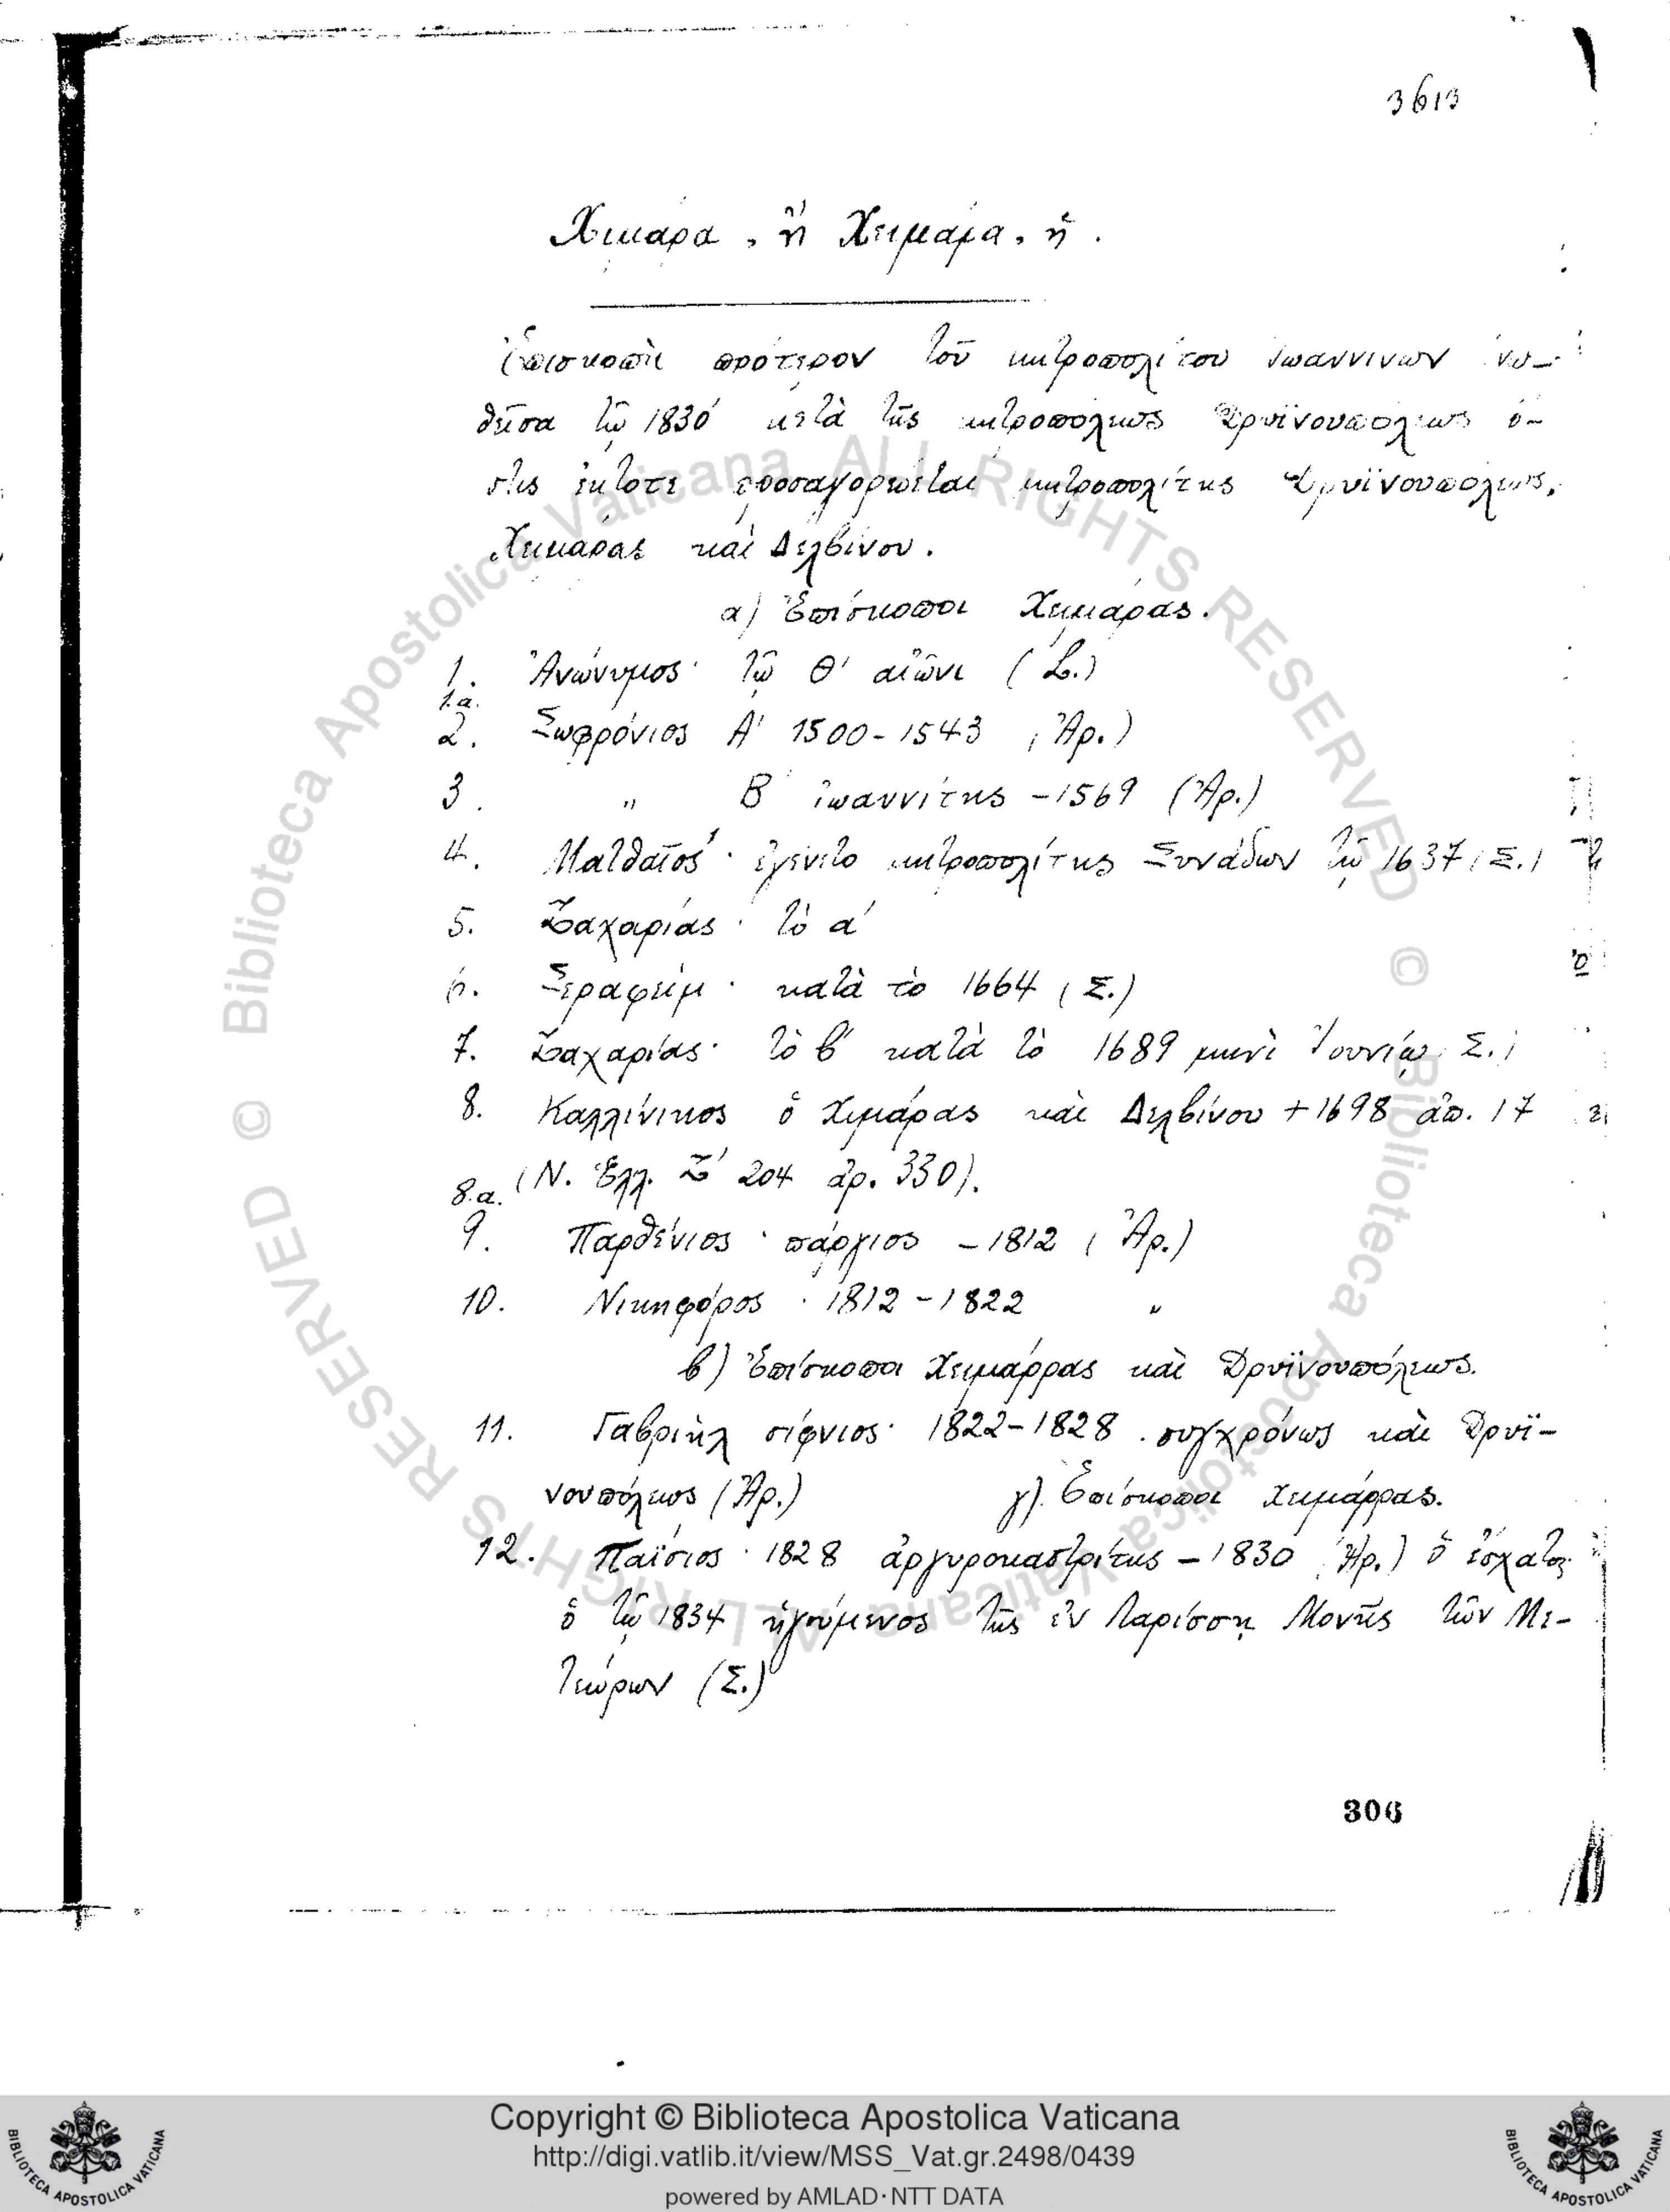 3613
Χιμάρα, ἢ Χειμάρα, ἡ.
Ἐπισκοπὴ πρότερον τοῦ μητροπολίτου Ἰωαννίνων ἑνω-
θεῖσα τῷ 1830 μετὰ τῆς μητροπόλεως Δρυϊνουπόλεως ὅ-
στις ἔκτοτε προσαγορεύεται μητροπολίτης Δρυϊνουπόλεως,
Χειμάρας καὶ Δελβίνου.
α) Ἐπίσκοποι Χειμάρας.
1. Ἀνώνυμος· τῷ Θ' αἰῶνι (L.)
1.α.
2. Σωφρόνιος Α' 1500-1543 (Ἀρ.)
3. " Β' ἰωαννίτης -1569 (Ἀρ.)
4. Ματθαῖος· ἐγένετο μητροπολίτης Συνάδων τῷ 1637 (Σ.)
5. Ζαχαρίας· τὸ α'
6. Σεραφεὶμ· κατὰ τὸ 1664 (Σ.)
7. Ζαχαρίας· τὸ β' κατὰ τὸ 1689 μηνὶ Ἰουνίῳ (Σ.)
8. Καλλίνικος ὁ Χιμάρας καὶ Δελβίνου +1698 ἀπ. 17
(Ν. Ἑλλ. Ζ' 204 ἀρ. 330).
8.α.
9. Παρθένιος· πάργιος -1812 (Ἀρ.)
10. Νικηφόρος· 1812-1822 "
β) Ἐπίσκοποι Χειμάρρας καὶ Δρυϊνουπόλεως.
11. Γαβριὴλ σίφνιος· 1822-1828. συγχρόνως καὶ Δρυϊ-
νουπόλεως (Ἀρ.) γ) Ἐπίσκοποι Χειμάρρας.
12. Παΐσιος· 1828 ἀργυροκαστρίτης -1830 (Ἀρ.) ὁ ἔσχατος
ὁ τῷ 1834 ἡγούμενος τῆς ἐν Λαρίσσῃ Μονῆς τῶν Με-
τεώρων (Σ.)
306
© Biblioteca Apostolica Vaticana ALL RIGHTS RESERVED © Biblioteca Apostolica Vaticana ALL RIGHTS RESERVED
Copyright © Biblioteca Apostolica Vaticana
http://digi.vatlib.it/view/MSS_Vat.gr.2498/0439
powered by AMLAD·NTT DATA
BIBLIOTECA APOSTOLICA VATICANA
BIBLIOTECA APOSTOLICA VATICANA